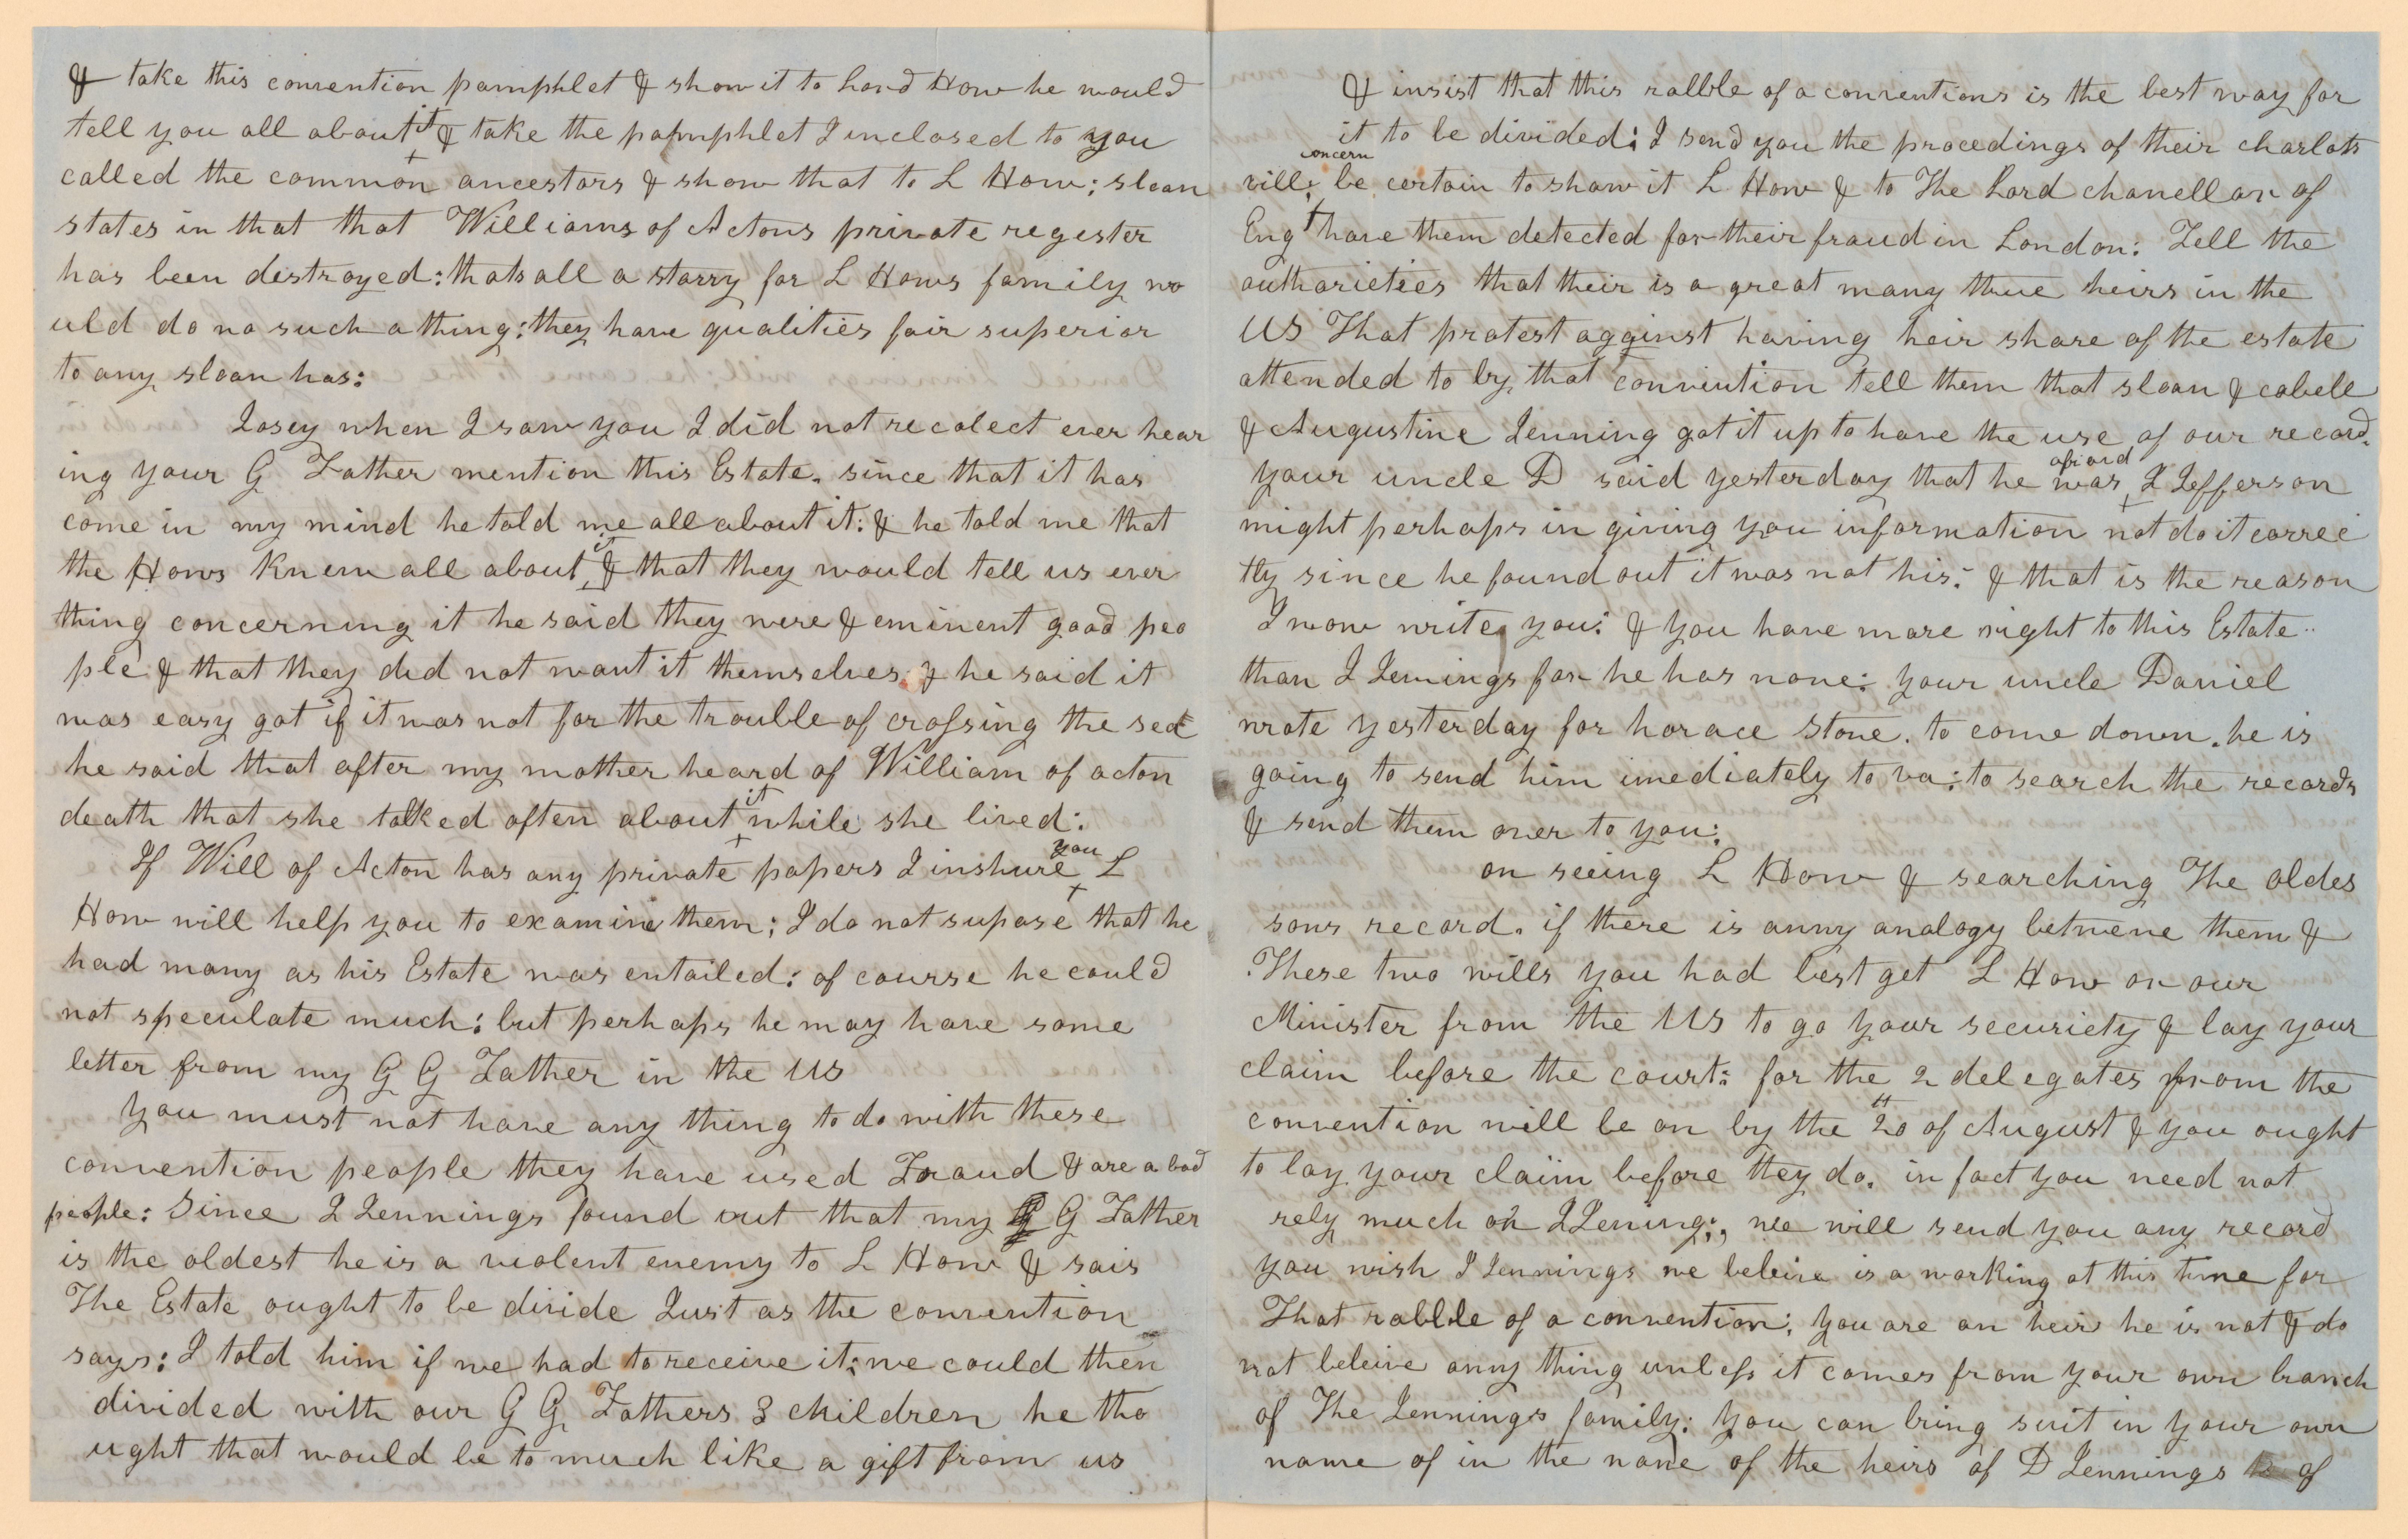 & take this convention pamphlet & show it to Lord How he would
tell you all about it & take the pamphlet I inclosed to you
called the common ancestors & show that to L How; sloan
states in that that Williams of Actons private regester
has been destroyed: thats all a storry for L Hows family wo
uld do no such a thing: they have qualities fair superior
to any sloan has:
Josey when I saw you I did not recolect ever hear
ing your G Father mention this Estate. since that it has
come in my mind he told me all about it: & he told me that
the Hows knew all about it & that they would tell us ever
thing concerning it he said they were & eminent good peo
ple & that they did not want it themselves & he said it
was easy got if it was not for the trouble of crossing the sea
he said that after my mother heard of William of acton
death that she talked often about it while she lived:
If Will of Acton has any private papers I inshure you L
How will help you to examine them; I do not supose that he
had many as his Estate was entailed: of course he could
not speculate much: but perhaps he may have some
letter from my G G Father in the US
you must not have any thing to do with these
convention people they have used Fraud & are a bad
people: Since J Jennings found out that my G G Father
is the oldest he is a violent enemy to L How & sais
The Estate ought to be divide Just as the convention
says: I told him if we had to receive it: we could then
divided with our G G Fathers 3 children he tho
ught that would be to much like a gift from us
& insist that this rabble of a conventions is the best way for
it to be divided: I send you the procedings of their charlots
vill concern; be certain to show it L How & to The Lord chanellor of
Eng & have them detected for their fraud in London: Tell the
autharieties that their is a great many thue heirs in the
US That protest against having heir share of the estate
attended to by that conviution tell them that sloan & cabell
& Augustine Jenning got it up to have the use of our record.
your uncle D said yesterday that he was afraid J Jefferson
might perhaps in giving you information not do it correc
tly since he found out it was not his: & that is the reason
I now write you: & you have more right to this Estate
than J Jennings for he has none: your uncle Daniel
wrote yesterday for horace Stone. to come down. he is
going to send him imediately to va: to search the records
& send them over to you:
on seeing L How & searching The oldes
sons record. if there is anny analogy betwene them &
These two wills you had best get L How or our
Minister from the US to go your securiety & lay your
claim before the court: for the 2 delegates from the
convention will be on by the 20 of August & you ought
to lay your claim before they do. in fact you need not
rely much on J Jening; we will send you any record
you wish J Jennings we beleive is a working at this time for
That rabble of a convention; you are an heir he is not & do
not beleive anny thing unless it comes from your own branch
of The Jennings family: you can bring suit in your own
name of in the name of the heirs of D Jennings of